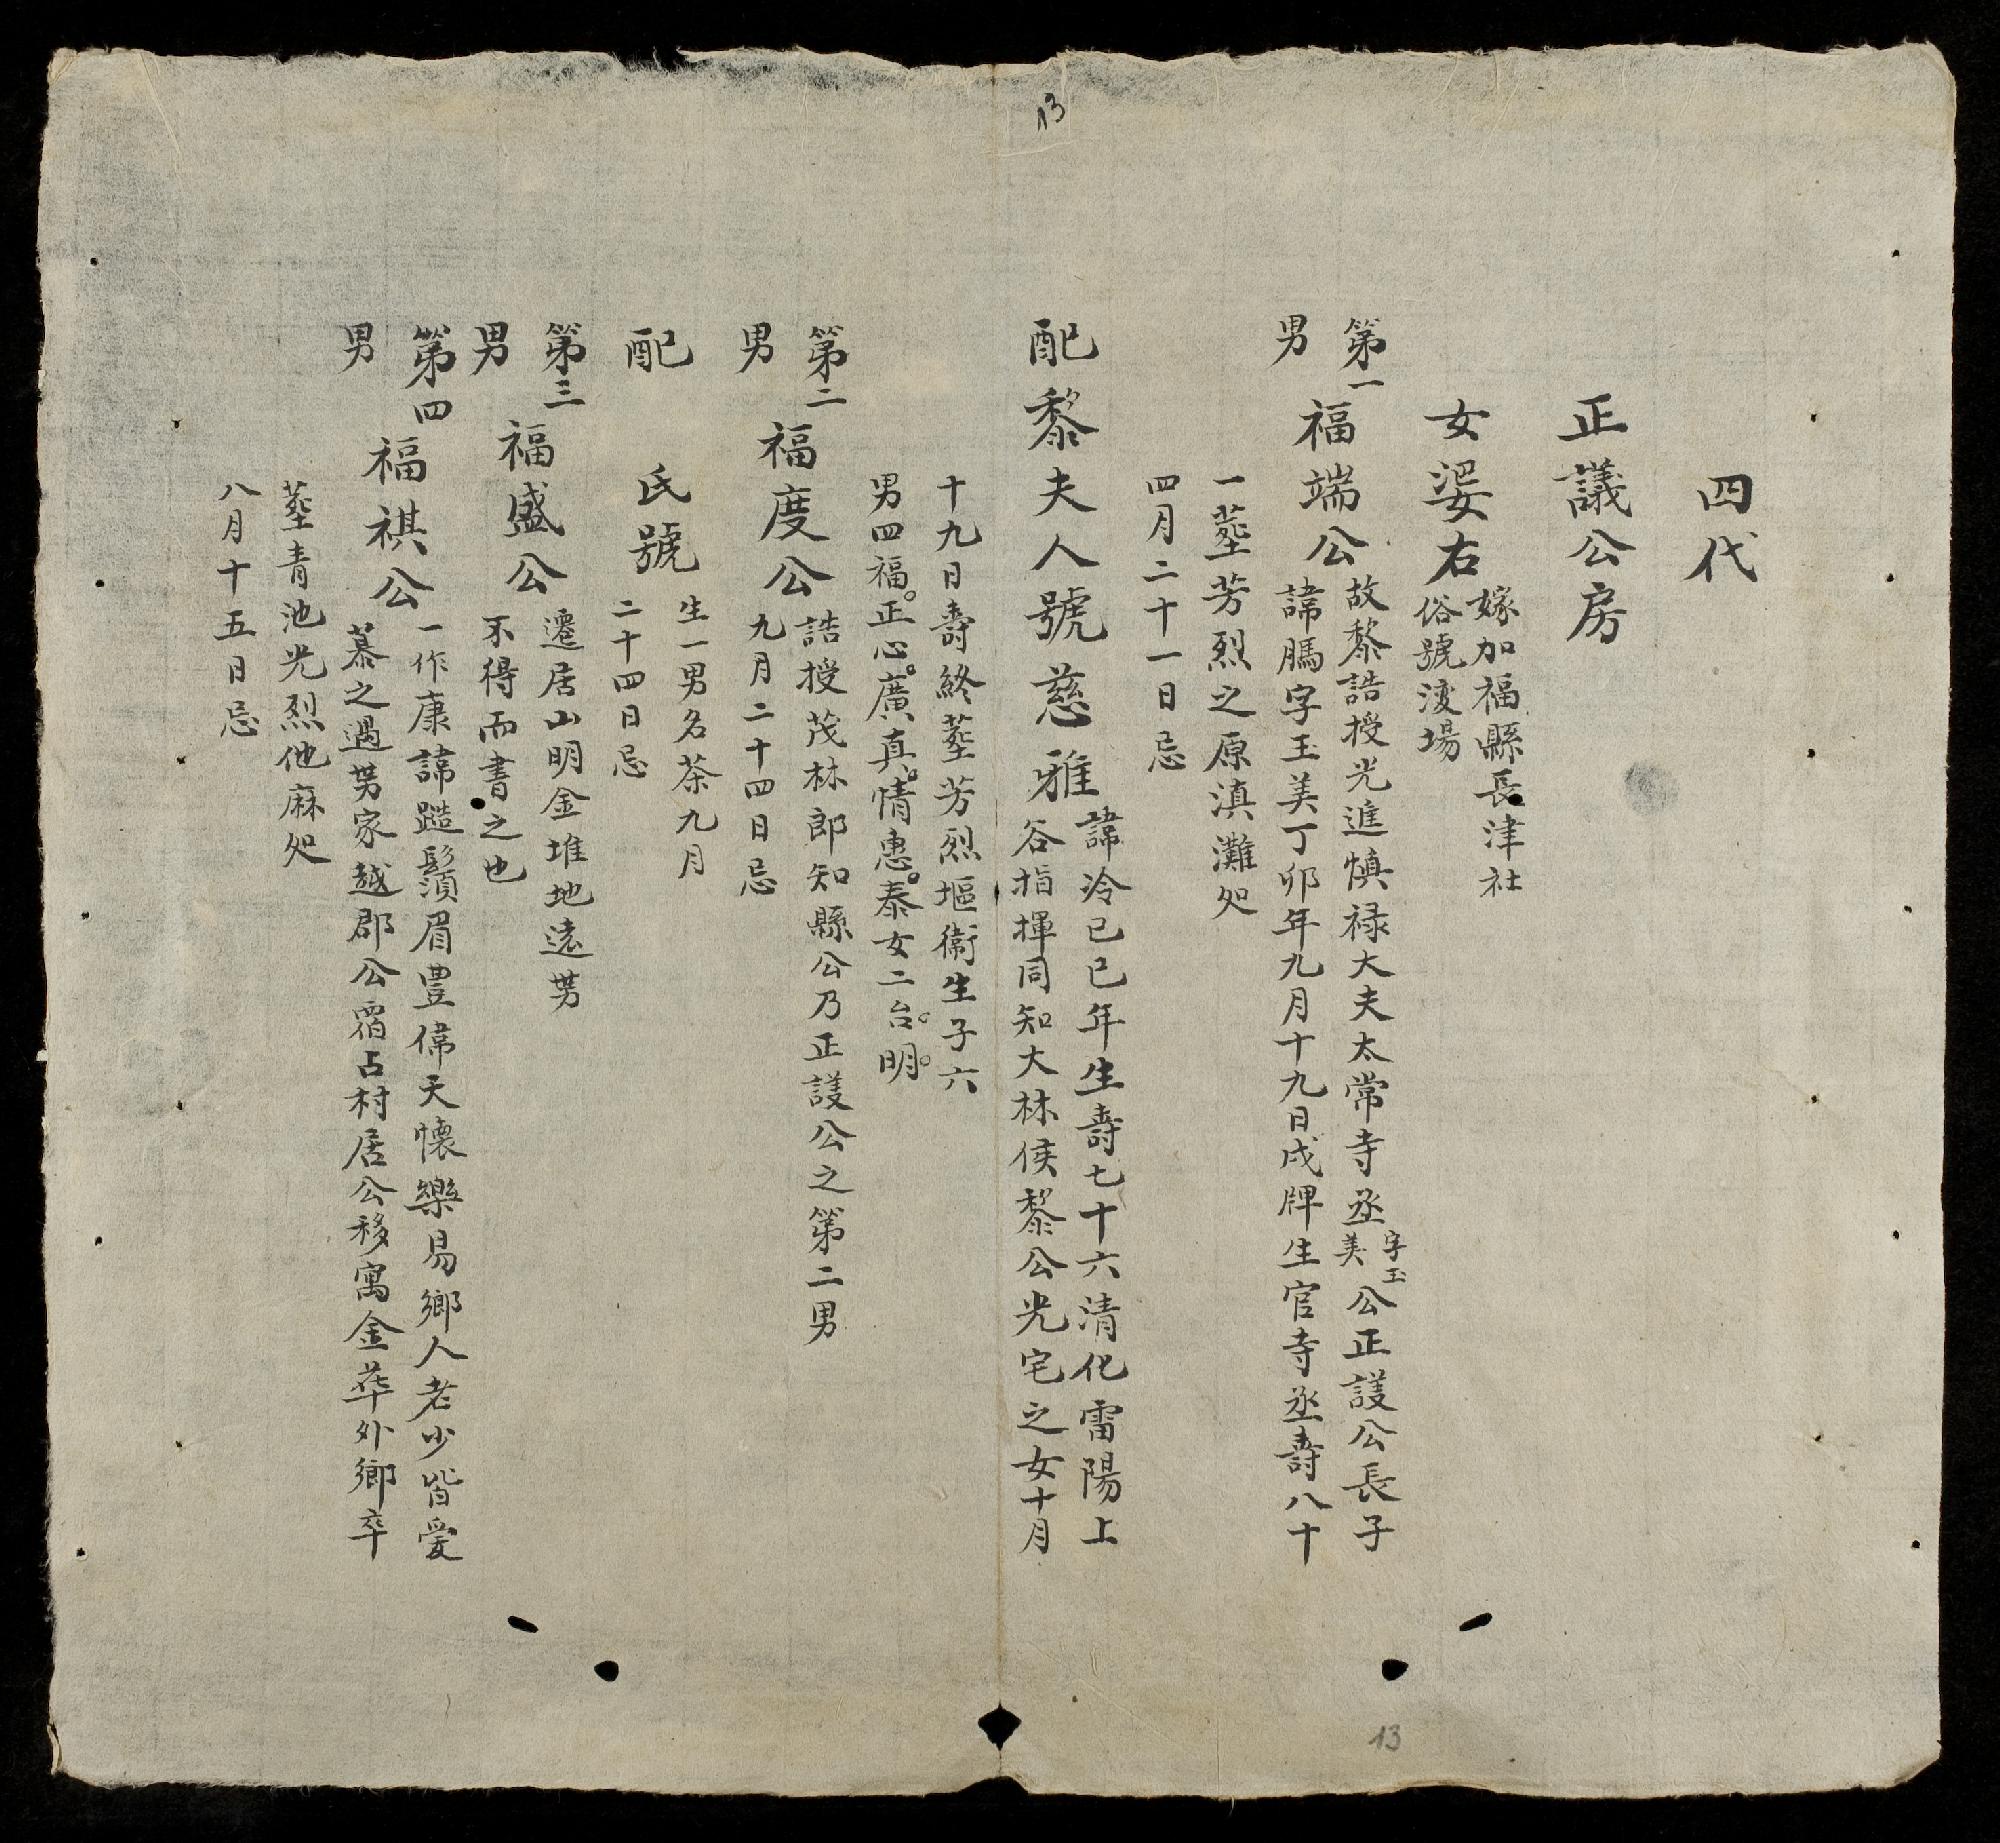 13
四代
正議公房
女婆右
嫁加福縣長津社
俗號渡場
第一
男
福端公
故黎誥授光進慎禄大夫太常寺丞字玉美公正議公長子
諱騰字玉美丁卯年九月十九日戌牌生官寺丞壽八十
一葬芳烈之原滇灘処
四月二十一日忌
配黎夫人號慈雅
諱冷己巳年生壽七十六清化雷陽上
谷指揮同知大林侯黎公光宅之女十月
十九日壽終葬芳烈塸衛生子六
男四福。正心。廣真。情惠。泰女二台。明。
第二
男
福度公
誥授茂林郎知縣公乃正議公之第二男
九月二十四日忌
配
氏號
生一男名茶九月
二十四日忌
第三
男
福盛公
遷居山明金堆地遠㒼
不得而書之也
第四
男
福祺公
一作康諱蹅鬚眉豊偉天懷樂易鄉人老少皆愛
慕之遇㒼家越郡公宿占村居公移寓金華外鄉卒
葬青池光烈他麻処
八月十五日忌
13